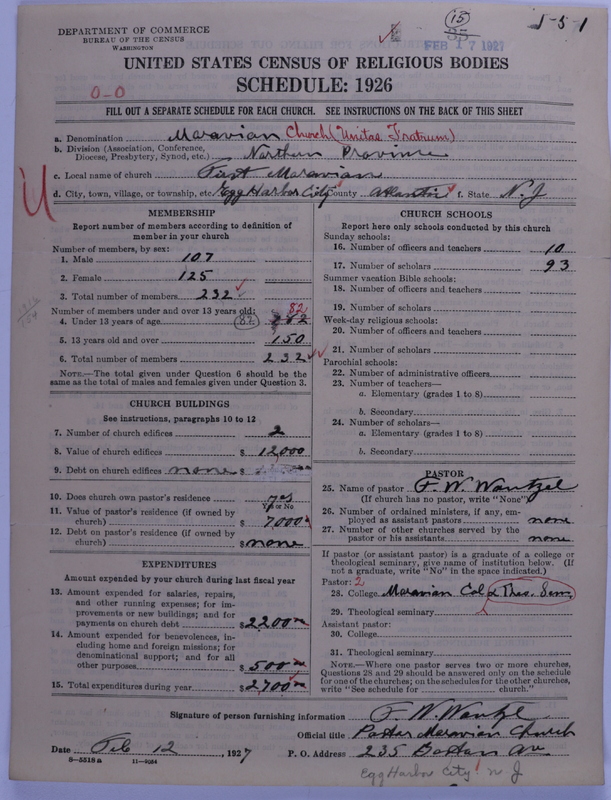 DEPARTMENT OF COMMERCE
BUREAU OF THE CENSUS
WASHINGTON
15
35
FEB 17 1927
5-5-1
UNITED STATES CENSUS OF RELIGIOUS BODIES
SCHEDULE: 1926
0-0
FILL OUT A SEPARATE SCHEDULE FOR EACH CHURCH. SEE INSTRUCTIONS ON THE BACK OF THIS SHEET
a. Denomination Moravian Church (Unitas Fratrum)
b. Division (Association, Conference, Diocese, Presbytery, Synod, etc.) Northern Province
c. Local name of church First Moravian
d. City, town, village, or township, etc. Egg Harbor City County Atlantic f. State N. J
MEMBERSHIP
Report number of members according to definition of member in your church
Number of members, by sex:
1. Male 107
2. Female 125
3. Total number of members 232
Number of members under and over 13 years old: 82
4. Under 13 years of age 82
5. 13 years old and over 150
6. Total number of members 232
NOTE.—The total given under Question 6 should be the same as the total of males and females given under Question 3.
CHURCH BUILDINGS
See instructions, paragraphs 10 to 12
7. Number of church edifices 2
8. Value of church edifices $12,000
9. Debt on church edifices none $
10. Does church own pastor's residence yes
Yes or No
11. Value of pastor's residence (if owned by church) $7000
12. Debt on pastor's residence (if owned by church) $none
EXPENDITURES
Amount expended by your church during last fiscal year
13. Amount expended for salaries, repairs, and other running expenses; for improvements or new buildings; and for payments on church debt $2200
14. Amount expended for benevolences, including home and foreign missions; for denominational support; and for all other purposes $500
15. Total expenditures during year $2,700
CHURCH SCHOOLS
Report here only schools conducted by this church
Sunday schools:
16. Number of officers and teachers 10
17. Number of scholars 93
Summer vacation Bible schools:
18. Number of officers and teachers
19. Number of scholars
Week-day religious schools:
20. Number of officers and teachers
21. Number of scholars
Parochial schools:
22. Number of administrative officers
23. Number of teachers—
a. Elementary (grades 1 to 8)
b. Secondary
24. Number of scholars—
a. Elementary (grades 1 to 8)
b. Secondary
PASTOR
25. Name of pastor F. W. Wantzel
(If church has no pastor, write "None")
26. Number of ordained ministers, if any, employed as assistant pastors none
27. Number of other churches served by the pastor or his assistants none
If pastor (or assistant pastor) is a graduate of a college or theological seminary, give name of institution below. (If not a graduate, write "No" in the space indicated.)
Pastor: 2
28. College Moravian Col & Theo. Sem.
29. Theological seminary
Assistant pastor:
30. College
31. Theological seminary
NOTE.—Where one pastor serves two or more churches, Questions 28 and 29 should be answered only on the schedule for one of the churches; on the schedules for the other churches, write "See schedule for church."
Signature of person furnishing information F. W. Wantzel
Official title Pastor Moravian Church
Date Feb 12, 1927 P. O. Address 235 Boston Av
8-5518a 11-9024
Egg Harbor City N J